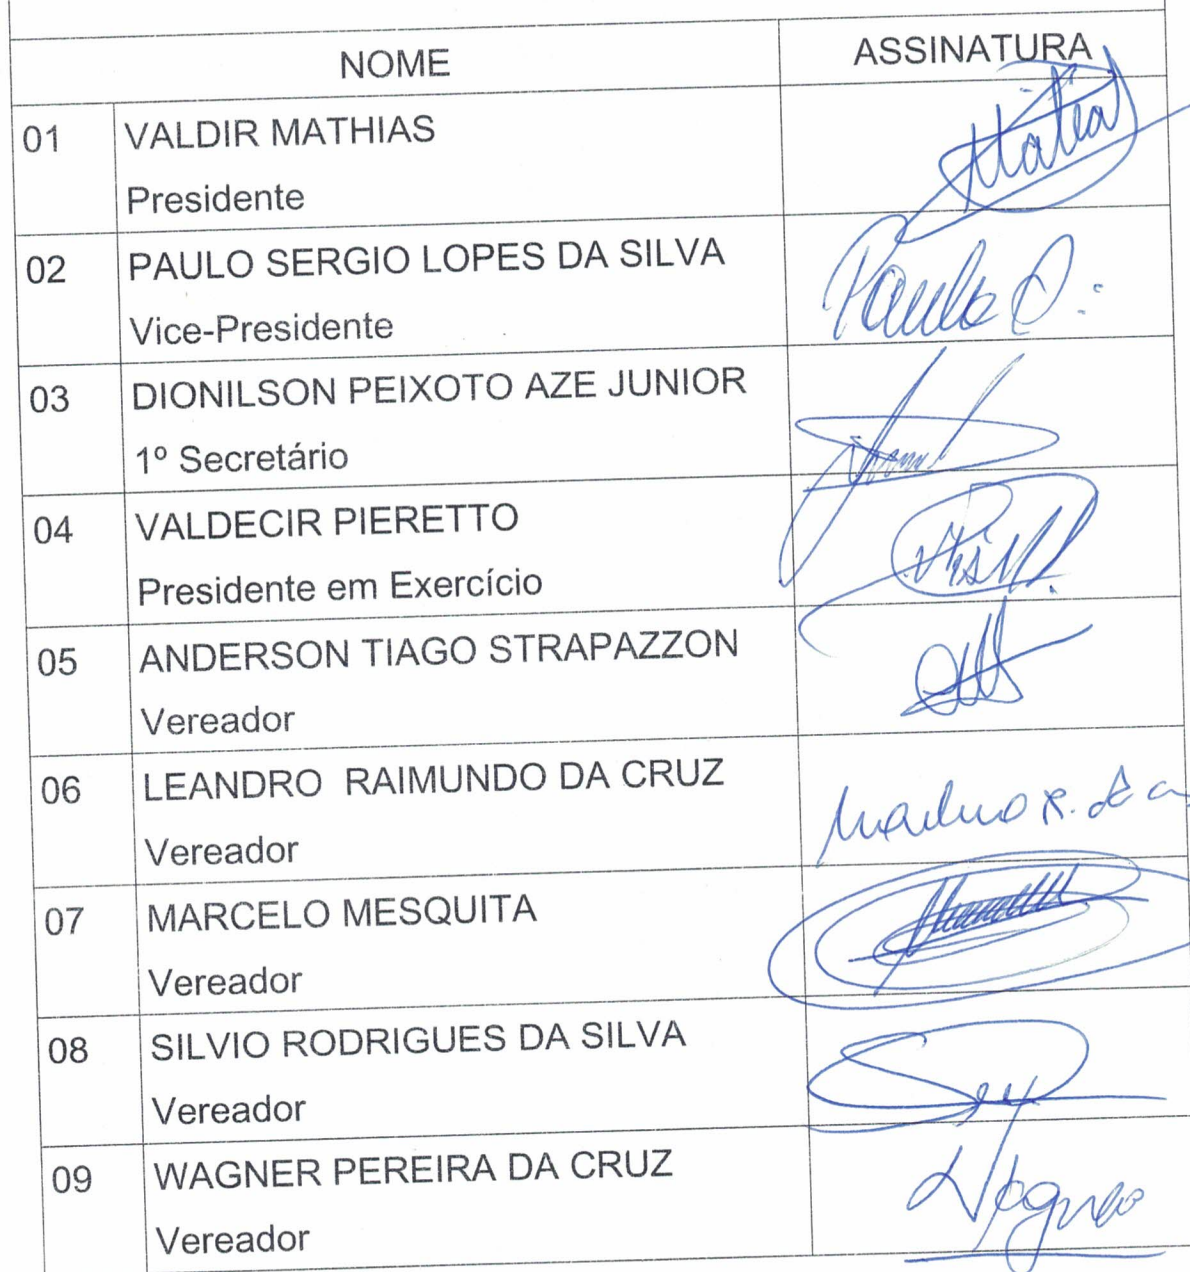 NOME ASSINATURA
01 VALDIR MATHIAS
Presidente
02 PAULO SERGIO LOPES DA SILVA
Vice-Presidente
Paulo
03 DIONILSON PEIXOTO AZE JUNIOR
1º Secretário
04 VALDECIR PIERETTO
Presidente em Exercício
05 ANDERSON TIAGO STRAPAZZON
Vereador
06 LEANDRO RAIMUNDO DA CRUZ
Vereador
07 MARCELO MESQUITA
Vereador
08 SILVIO RODRIGUES DA SILVA
Vereador
09 WAGNER PEREIRA DA CRUZ
Vereador